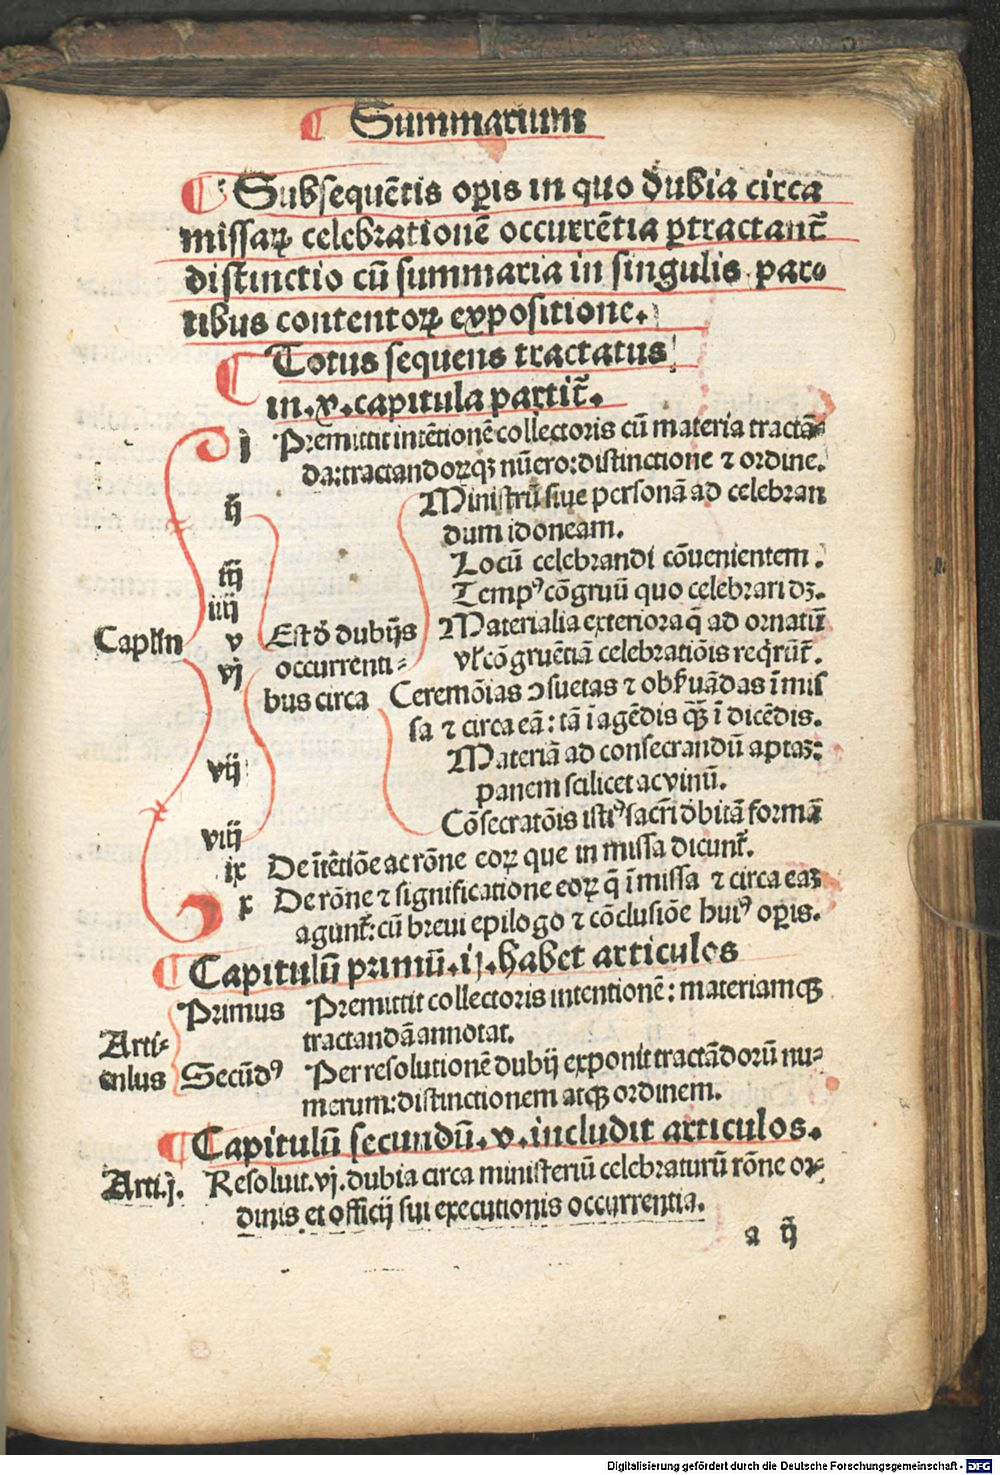 ¶ Summarium
¶ Subsequētis oꝑis in quo dubia circa
missaꝝ celebrationē occurrētia ꝑtractant᷑
distinctio cū summaria in singulis par⸗
tibus contentoꝝ expositione.
¶ Totus sequens tractatus
in .x. capitula partit᷑.
i Premittit intētionē collectoris cū materia tractā⸗
da: tractandorꝝqꝫ nūero: distinctione ⁊ ordine.
ij Ministrū siue personā ad celebran
dum idoneam.
iij Locū celebrandi cōuenientem.
iiij Tempꝰ cōgruū quo celebrari dꝫ.
Caplm v Est de dubijs Materialia exteriora q̄ ad ornatū
vj occurrenti⸗ vl' cōgruētiā celebratiōis reqrūt᷑.
bus circa Ceremōias ↄsuetas ⁊ obẜuādas ī mis
sa ⁊ circa eā: tā ī agēdis qꝫ̄ ī dicēdis.
vij Materiā ad consecrandū aptaꝫ:
panem scilicet ac vinū.
viij Cōsecratōis istiꝰ sacri dbitā formā
ix De ītētiōe ac rōne eoꝝ que in missa dicunt᷑.
x De rōne ⁊ significatione eoꝝ q̄ ī missa ⁊ circa eaꝫ
agunt᷑: cū breui epilogo ⁊ cōclusiōe huiꝰ oꝑis.
¶ Capitulū primū .ij. habet articulos
Primus Premittit collectoris intentionē: materiamqꝫ
Arti⸗ tractandā annotat.
culus Secūdꝰ Per resolutionē dubij exponit tractādorū nu⸗
merum: distinctionem atqꝫ ordinem.
¶ Capitulū secundū .v. includit articulos.
Arti.j. Resoluit .vj. dubia circa ministeriū celebraturū rōne or⸗
dinis et officij sui executionis occurrentia.
a ij
Digitalisierung gefördert durch die Deutsche Forschungsgemeinschaft - DFG